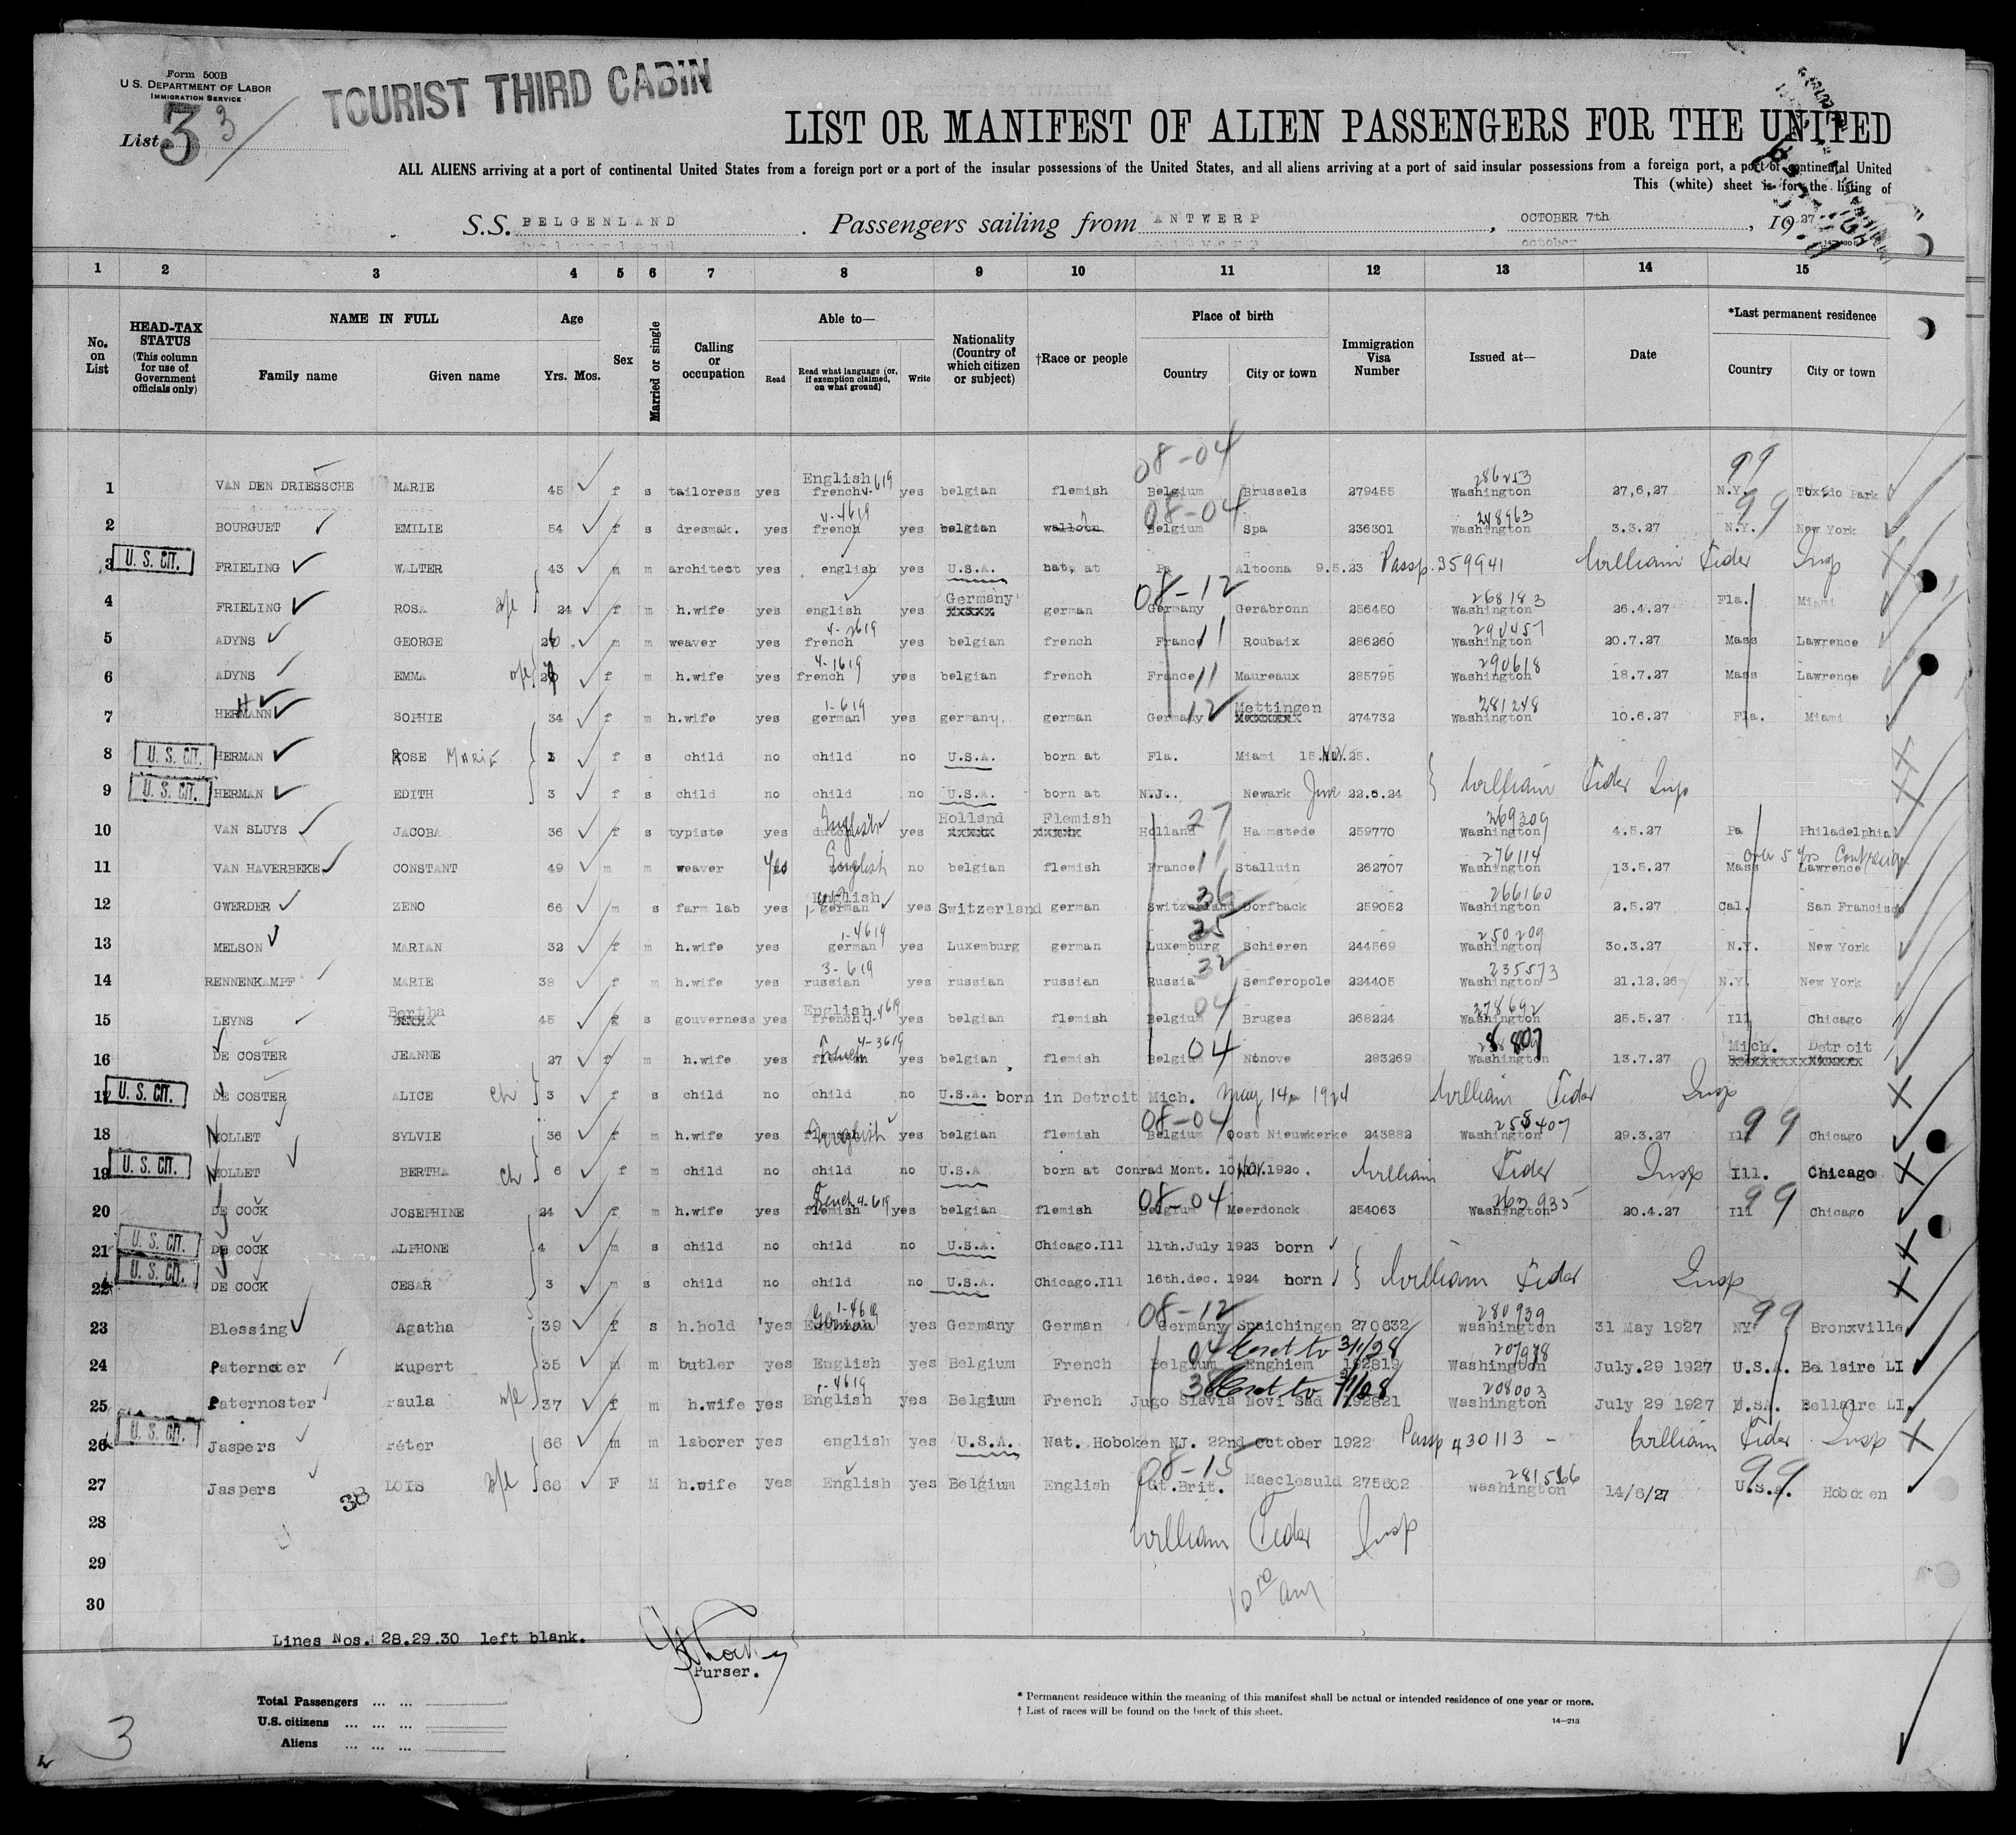 Form 500B
U.S. DEPARTMENT OF LABOR
IMMIGRATION SERVICE
TOURIST THIRD CABIN
List 3 3
LIST OR MANIFEST OF ALIEN PASSENGERS FOR THE UNITED
ALL ALIENS arriving at a port of continental United States from a foreign port or a port of the insular possessions of the United States, and all aliens arriving at a port of said insular possessions from a foreign port, a port of continental United
This (white) sheet is for the listing of
S.S. BELGENLAND . Passengers sailing from ANTWERP , OCTOBER 7th , 1927
1 2 3 4 5 6 7 8 9 10 11 12 13 14 15
No. on List HEAD-TAX STATUS (This column for use of Government officials only) NAME IN FULL Family name Given name Age Yrs. Mos. Sex Married or single Calling or occupation Able to— Read Read what language (or, if exemption claimed, on what ground) Write Nationality (Country of which citizen or subject) †Race or people Place of birth Country City or town Immigration Visa Number Issued at— Date *Last permanent residence Country City or town
08-04 99
1 VAN DEN DRIESSCHE MARIE 45 f s tailoress yes English french 619 yes belgian flemish Belgium Brussels 279455 286253 Washington 27,6,27 N.Y. Tuxedo Park
2 BOURGUET EMILIE 54 f s dresmak. yes french 4-4619 yes belgian walloon 08-04 Belgium Spa 236301 248963 Washington 3.3.27 99 N.Y. New York
3 U. S. CIT. FRIELING WALTER 43 m m architect yes english yes U.S.A. nat, at Pa Altoona 9.5.23 Passp. 359941 William Fider Insp
4 FRIELING ROSA w/e 24 f m h.wife yes english yes Germany xxxxx german 08-12 Germany Gerabronn 256450 268183 Washington 26.4.27 Fla. Miami
5 ADYNS GEORGE 26 m m weaver yes french 4-2619 yes belgian french France 11 Roubaix 286260 290457 Washington 20.7.27 Mass Lawrence
6 ADYNS EMMA w/e f m h.wife yes french 4-1619 yes belgian french France 11 Maureaux 285795 290618 Washington 18.7.27 Mass Lawrence
7 HERMANN SOPHIE 34 f m h.wife yes german 1-619 yes germany. german Germany 12 Mettingen xxxxxxx 274732 281248 Washington 10.6.27 Fla. Miami
8 U. S. CIT. HERMAN ROSE MARIE f s child no child no U.S.A. born at Fla. Miami 15.Nov.25.
9 U. S. CIT. HERMAN EDITH 3 f s child no child no U.S.A. born at N.J.. Newark June 22.6.24 William Fider Insp
10 VAN SLUYS JACOBA 36 f s typiste yes English dutch yes Holland xxxxx Flemish xxxxx Holland 27 Hamstede 259770 269309 Washington 4.5.27 Pa Philadelphia
11 VAN HAVERBEKE CONSTANT 49 m m weaver Yes English no belgian flemish France 11 Stalluin 262707 276114 Washington 13.5.27 over 5 yrs Mass Lawrence
12 GWERDER ZENO 66 m s farm lab yes English german yes Switzerland german Switzerland 36 Dorfback 259052 266160 Washington 2.5.27 Cal. San Francisco
13 MELSON MARIAN 32 f m h.wife yes german 1-4619 yes Luxemburg german Luxemburg 25 Schieren 244569 250209 Washington 30.3.27 N.Y. New York
14 RENNENKAMPF MARIE 38 f m h.wife yes russian 3-619 yes russian russian Russia 32 Semferopole 224405 235573 Washington 21.12.26 N.Y. New York
15 LEYNS Bertha xxxxx 45 f s gouverness yes English french 4-4619 yes belgian flemish Belgium 04 Bruges 268224 278692 Washington 25.5.27 Ill Chicago
16 DE COSTER JEANNE 27 f m h.wife yes french 4-3619 yes belgian flemish Belgium 04 Ninove 283269 Washington 13.7.27 Mich. Detroit
17 U. S. CIT. DE COSTER ALICE ch 3 f s child no child no U.S.A. born in Detroit Mich. May 14 1924 William Fider Insp
18 MOLLET SYLVIE 36 f m h.wife yes English yes belgian flemish 08-04 Belgium Oost Nieuwkerke 243882 255407 Washington 29.3.27 99 Ill Chicago
19 U. S. CIT. MOLLET BERTHA ch 6 f m child no child no U.S.A born at Conrad Mont. 10.Nov.1920. William Fider Insp Ill. Chicago
20 DE COCK JOSEPHINE 24 f m h.wife yes flemish 4-619 yes belgian flemish 08-04 Belgium Meerdonck 254063 263935 Washington 20.4.27 99 Ill Chicago
21 U. S. CIT. DE COCK ALPHONE 4 m s child no child no U.S.A. Chicago.Ill 11th.July 1923 born
22 U. S. CIT. DE COCK CESAR 3 m s child no child no U.S.A. Chicago.Ill 16th.dec. 1924 born William Fider Insp
23 Blessing Agatha 39 f s h.hold yes German 1-4619 yes Germany German 08-12 Germany Spaichingen 270632 280939 Washington 31 May 1927 99 NY Bronxville
24 Paternoter Rupert 35 m m butler yes English yes Belgium French 04 Belgium Enghiem 192819 3/1/28 207978 Washington July.29 1927 U.S.A. Bellaire LI
25 Paternoster Paula w/e 37 f m h.wife yes English 1-4619 yes Belgium French 38 Jugo Slavia Novi Sad 192821 3/1/28 208003 Washington July 29 1927 U.SA. Bellaire LI.
26 U. S. CIT. Jaspers Peter 66 m m laborer yes english yes U.S.A. Nat. Hoboken NJ. 22nd october 1922 Passp 430113 - William Fider Insp
27 Jaspers 38 LOIS w/e 66 F M h.wife yes English yes Belgium English 08-15 Gt.Brit. Maeclesuld 275602 281566 Washington 14/6/27 99 U.S.A. Hoboken
28 William Fider Insp
29
30 10 10 am
Lines Nos. 28.29.30 left blank.
Purser.
Total Passengers ... ...
U.S. citizens ... ... ...
Aliens ... ... ...
* Permanent residence within the meaning of this manifest shall be actual or intended residence of one year or more.
† List of races will be found on the back of this sheet.
14—213
3